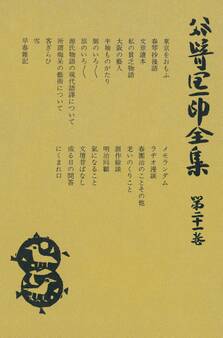 谷崎潤一郎全集
第二十一巻
東京をおもふ
春琴抄後語
文章讀本
私の貧乏物語
大阪の藝人
半袖ものがたり
厠のいろ〳〵
旅のいろ〳〵
源氏物語の現代語譯について
所謂痴呆の藝術について
雪
客ぎらひ
早春雜記
メモランダム
ラヂオ漫談
春團治のことその他
老いのくりこと
創作餘談
明治回顧
氣になること
文壇昔ばなし
或る日の問答
にくまれ口